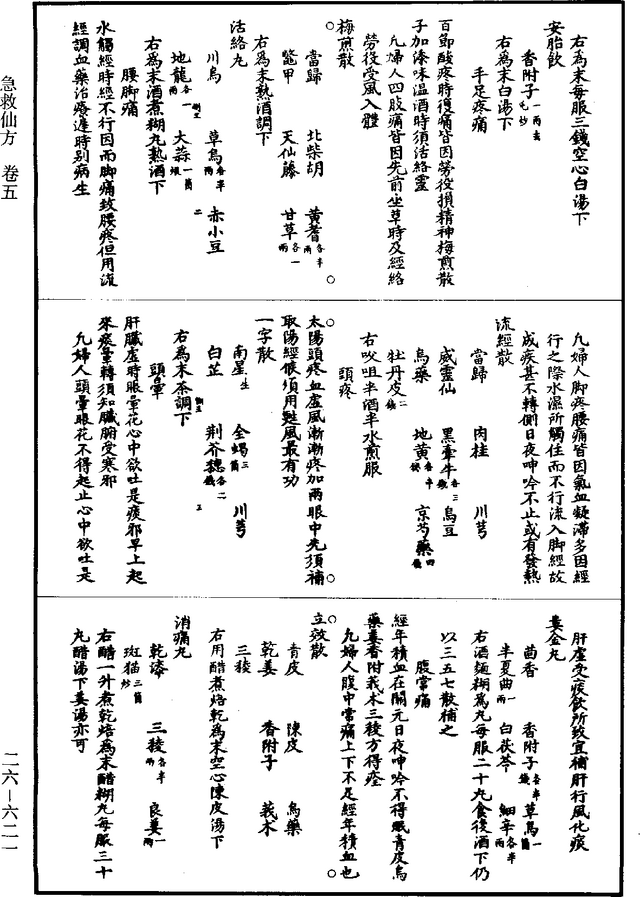 右為末每服三錢空心白湯下
安胎飲
香附子一兩去毛炒
右為末白湯下
手足疼痛
百節酸疼時復痛皆因勞役損精神梅煎散
子加漆味温酒時須活絡靈
凡婦人四肢痛皆因先前坐草時及經絡
勞役受風入體
梅煎散
當歸 北柴胡 黃耆各半兩
鱉甲 天仙藤 甘草各一兩
右為末熱酒調下
活絡丸
川烏 草烏各半兩 赤小豆
地龍各一兩 大蒜一箇煨
右為末酒煮糊丸熱酒下
腰脚痛
水觸經時經不行因而脚痛致腰疼但用流
經調血藥治療遲時别病生
凡婦人脚疼腰痛皆因氣血凝滯多因經
行之際水濕所觸住而不行流入脚經故
成疾甚不轉側日夜呻吟不止或有發熱
流經散
當歸 肉桂 川芎
威靈仙 黑牽牛各三錢 烏豆
烏藥 地黃各半錢 京芍藥四錢
牡丹皮二錢
右㕮咀半酒半水煎服
頭疼
太陽頭疼血虛風漸漸疼加兩眼中先須補
取陽經候須用魁風最有功
一字散
南星生 全蝎三箇 川芎
白芷 荆芥穗各二錢
右為末茶調下
頭暈
肝臟虛時眼暈花心中欲吐是痰邪早上起
來痰暈轉須知臟腑受寒邪
凡婦人頭暈眼花不得起止心中欲吐是
肝虛受痰飲所致宜補肝行風化痰
養金丸
茴香 香附子各半錢 草烏一箇
半夏曲一兩 白茯苓 細辛各半兩
右酒麵糊為丸每服二十丸食後酒下仍
以三五七散補之
腹常痛
經年積血在關元日夜呻吟不得眠青皮烏
藥薑香附莪朮三稜方得痊
凡婦人腹中常痛上下不定經年積血也
立效散
青皮 陳皮 烏藥
乾姜 香附子 莪朮
三稜
右用醋煮焙乾為末空心陳皮湯下
消痛丸
乾漆 三稜各半兩 良姜一兩
斑猫三箇炒
右醋一升煮乾焙為末醋糊丸每服三十
丸醋湯下姜湯亦可
急救仙方 卷五
二六—六二一